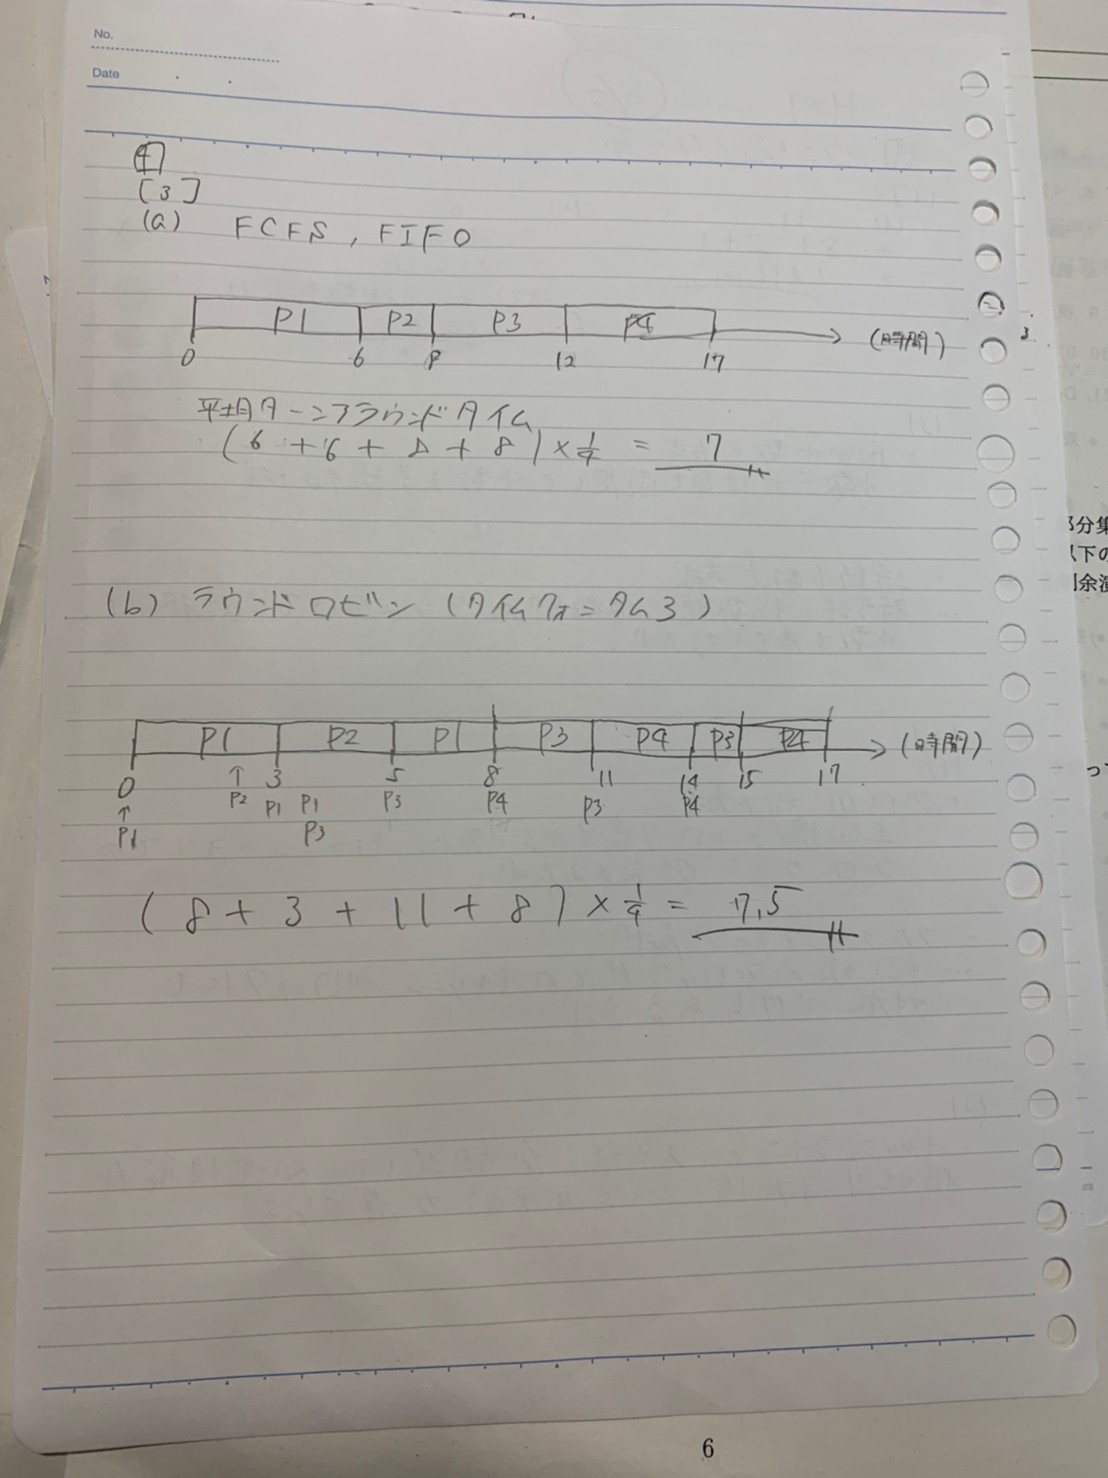 No.
Date
4
[3]
(a) FCFS, FIFO
P1 P2 P3 P4 (時間)
0 6 8 12 17
平均ターンアラウンドタイム
(6 + 6 + 8 + 8) × 1/4 = 7
(b) ラウンドロビン (タイムクォンタム3)
P1 P2 P1 P3 P4 P3 P4 (時間)
0 ↑ 3 5 8 11 14 15 17
↑ P2 P1 P1 P3 P4 P3 P4
P1 P3
(8 + 3 + 11 + 8) × 1/4 = 7.5
部分集
以下の
余
6